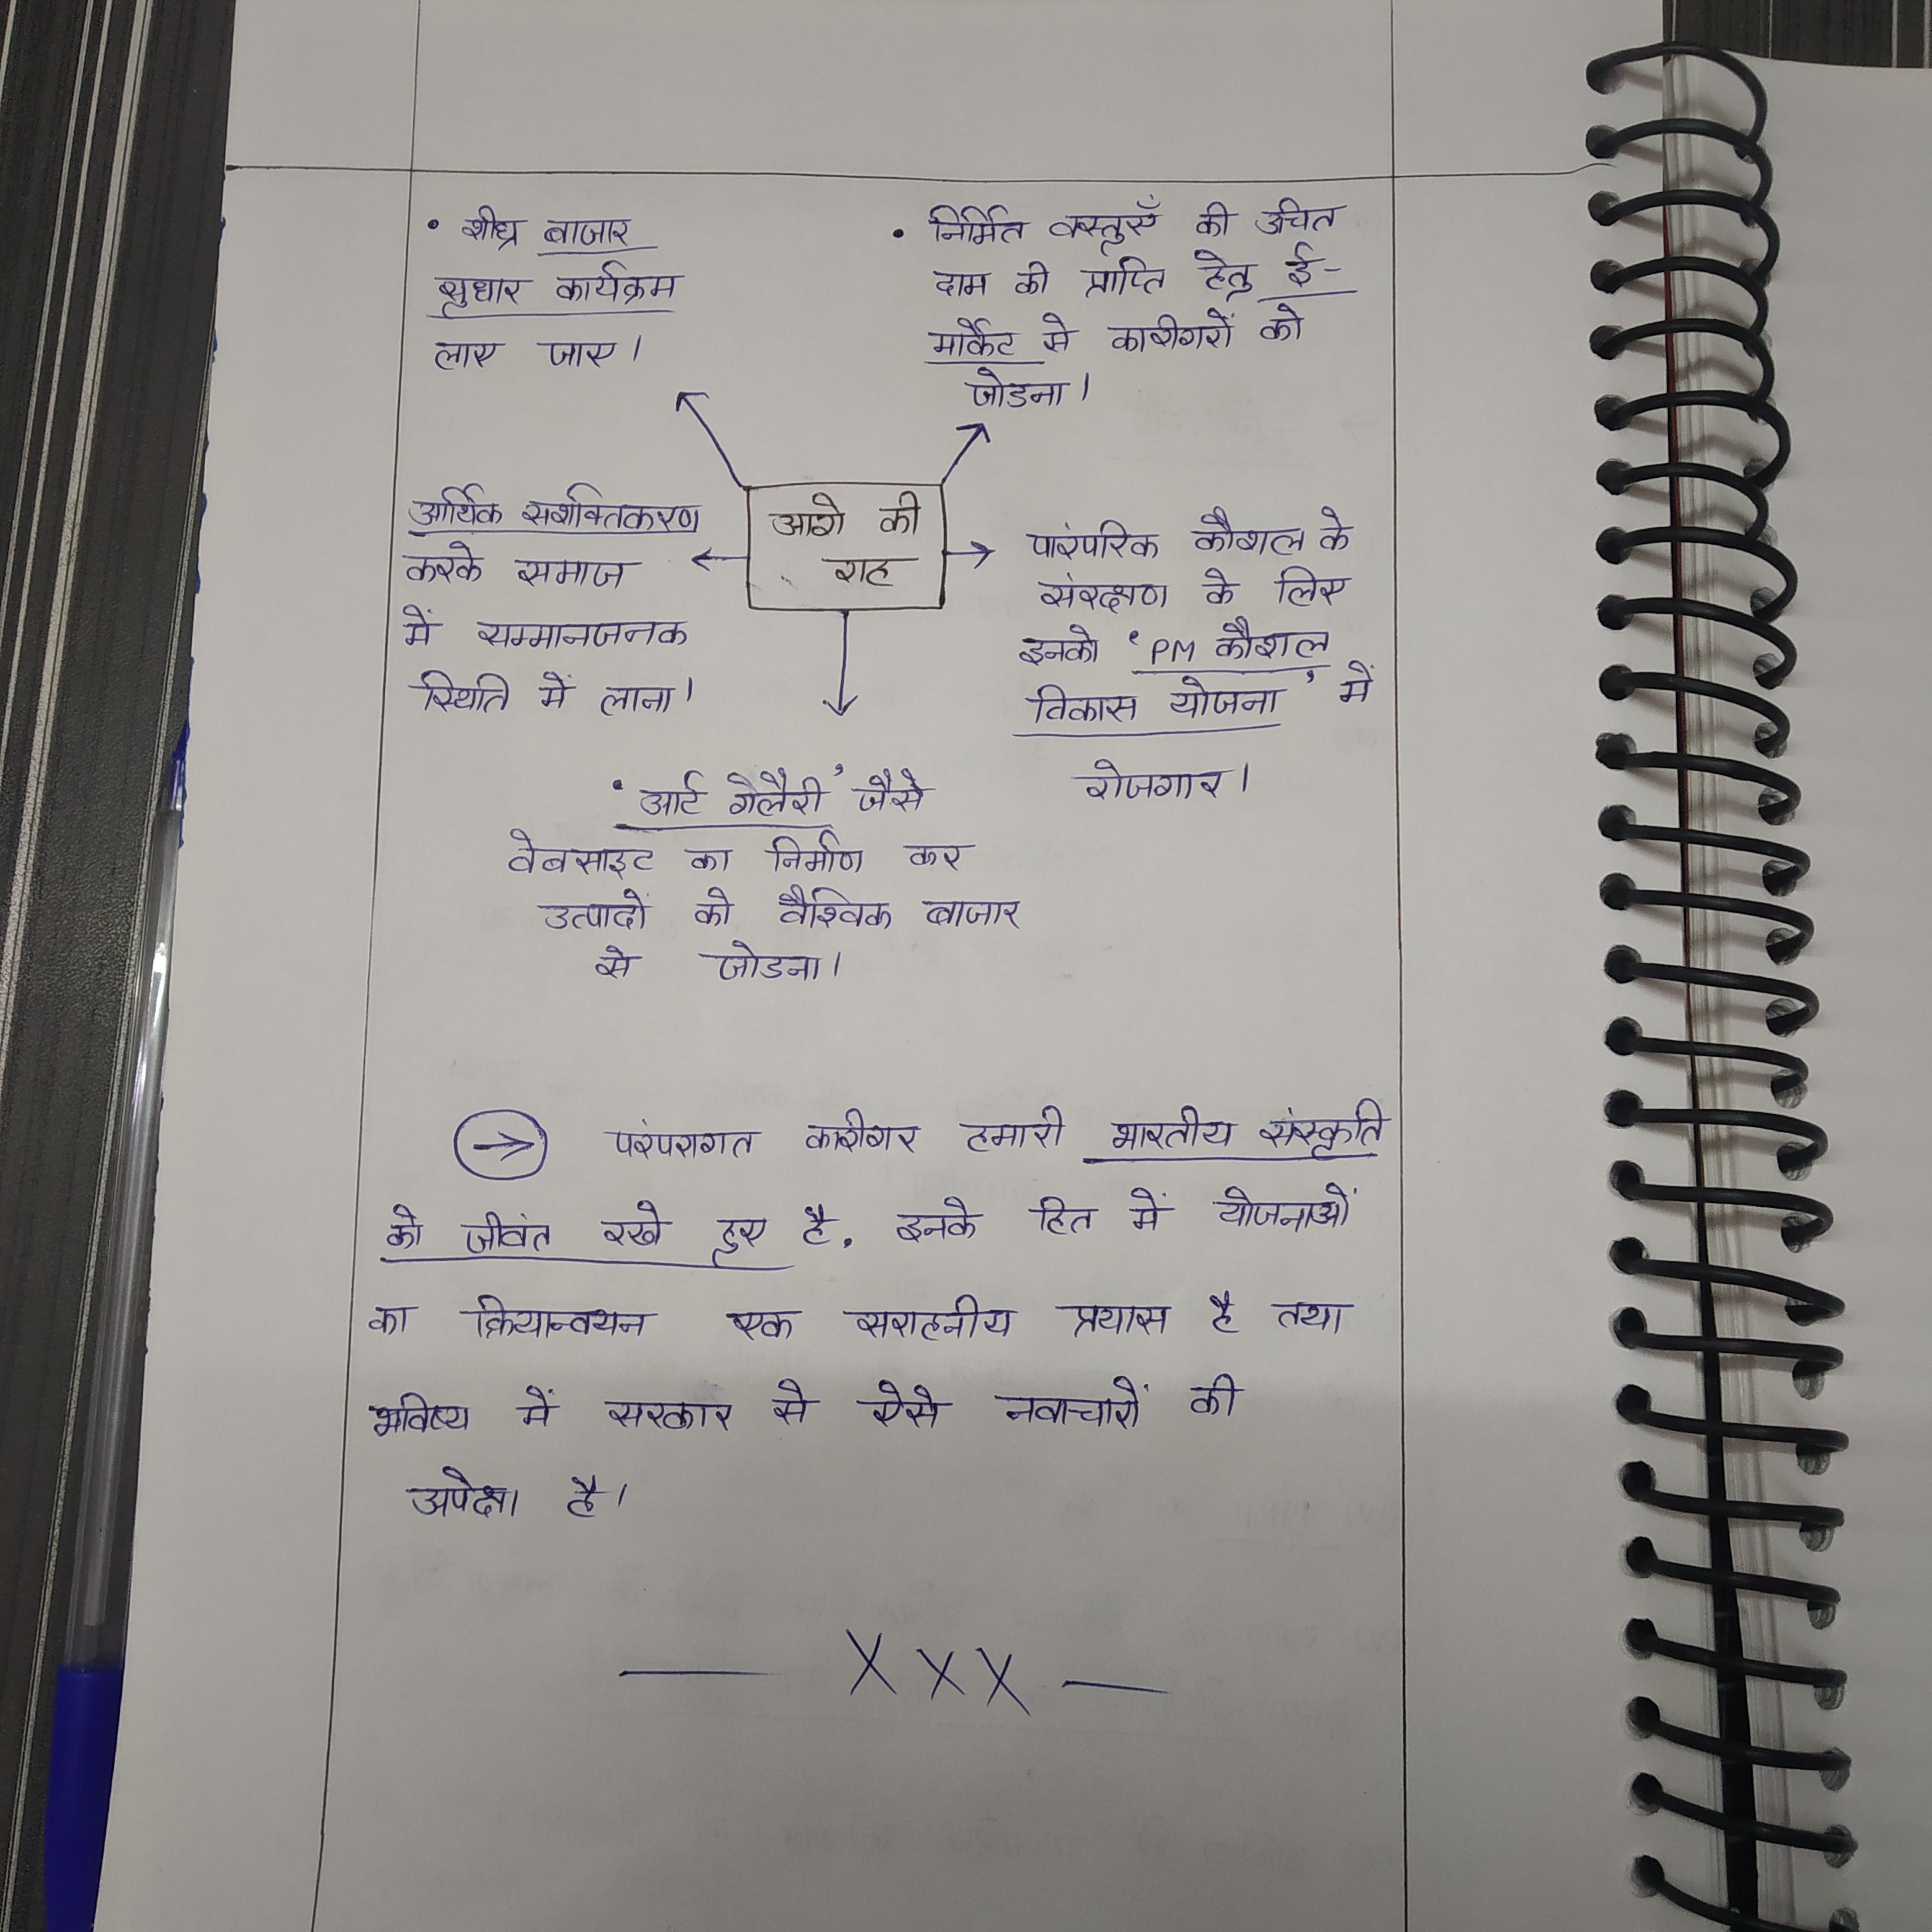 • शीघ्र बाजार
सुधार कार्यक्रम
लाए जाए।
• निर्मित वस्तुएँ की उचित
दाम की प्राप्ति हेतु ई-
मार्केट से कारीगरों को
जोडना।
आगे की
राह
आर्थिक सशक्तिकरण
करके समाज
में सम्मानजनक
स्थिति में लाना।
पारंपरिक कौशल के
संरक्षण के लिए
इनको 'PM कौशल
विकास योजना' में
रोजगार।
'आर्ट गेलैरी' जैसे
वेबसाइट का निर्माण कर
उत्पादों को वैश्विक बाजार
से जोडना।
→ परंपरागत कारीगर हमारी भारतीय संस्कृति
को जीवंत रखे हुए है, इनके हित में योजनाओं
का क्रियान्वयन एक सराहनीय प्रयास है तथा
भविष्य में सरकार से ऐसे नवाचारों की
अपेक्षा है।
— X X X —